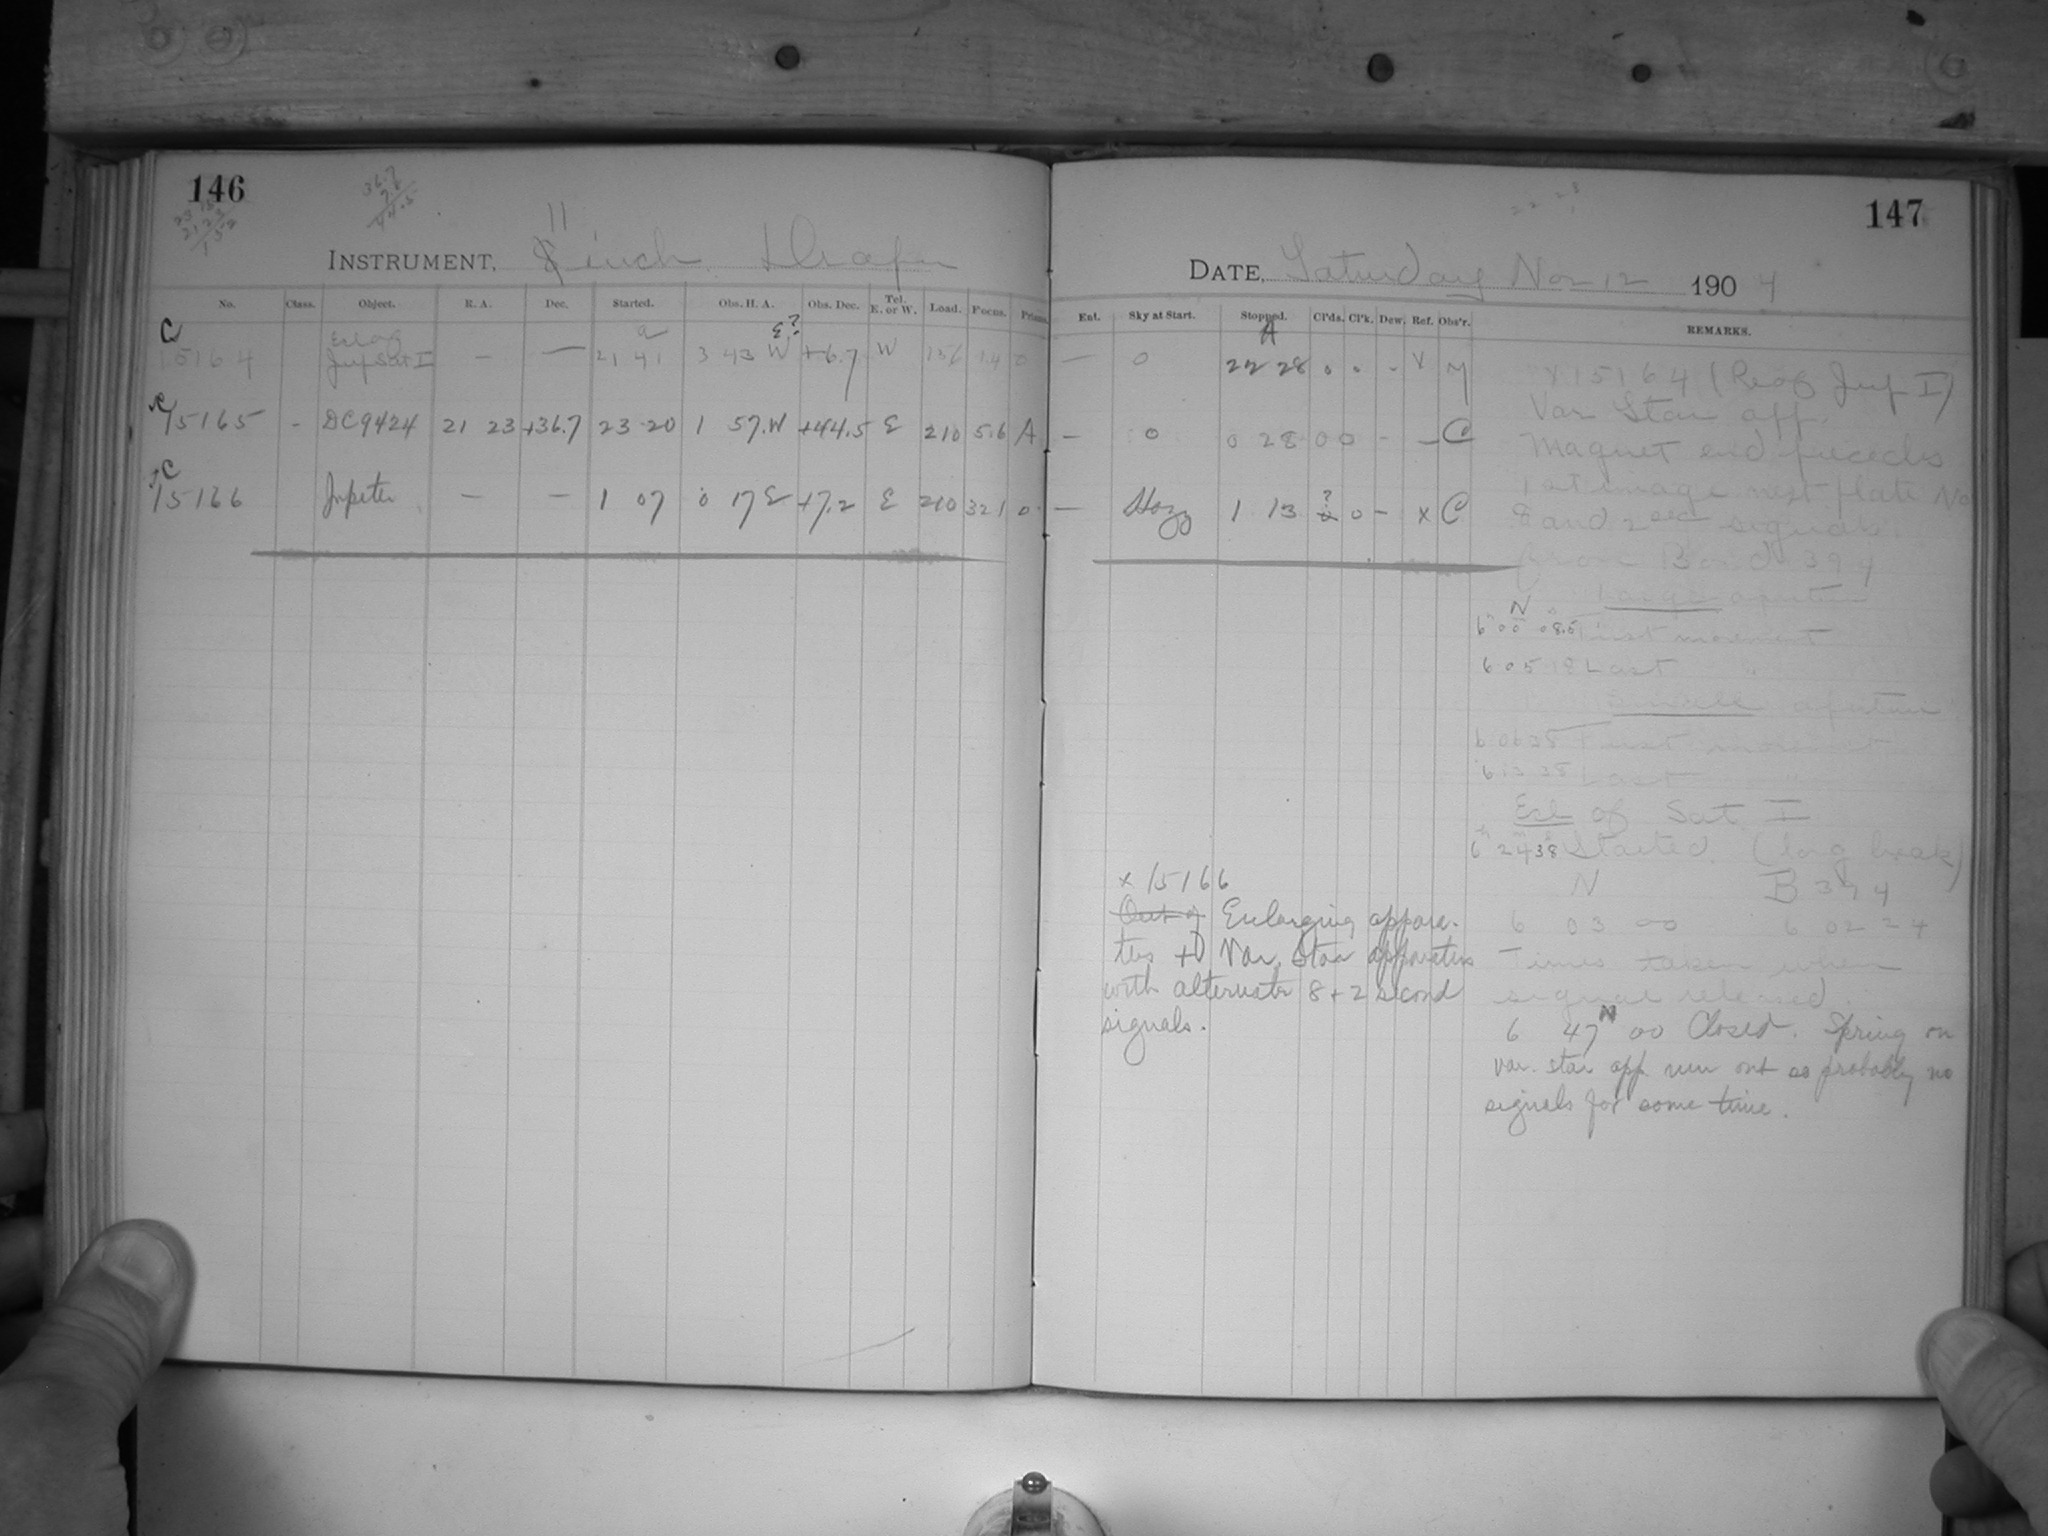 146
36.7
23 15
21 23
1 52
11
INSTRUMENT, 8 inch Draper
No. Class. Object. R. A. Dec. Started. Obs. H. A. Obs. Dec. Tel. E. or W. Load. Focus. Prisms.
C Ecl of a E?
15164 Jup Sat I — — 21 41 3 43 W +6.7 W 156 0
C
15165 - DC9424 21 23 +36.7 23 20 1 57.W +44.5 E 210 5.6 A
C
15166 Jupiter — — 1 07 0 17 E +7.2 E 210 32.1 0
147
22 28
DATE, Saturday Nov 12 1904
Ent. Sky at Start. Stopped. Cl'ds. Cl'k. Dew. Ref. Obs'r. REMARKS.
A
— 0 22 28 0 0 - x M
— 0 0 28 0 0 - - C
— Hazy 1 13 ? 0 - x C
x 15164 (Rec of Jup I)
Var Star app.
Magnet end precedes
1st image next plate No
8 and 2 sec signals
from Bond 394
Large aperture
N
6 00 08.5 First movement
6 05 18 Last "
Small aperture
6 06 35 First movement
6 13 35 Last "
Ecl of Sat I
6h 24m 38s Started. (long break)
N B 394
6 03 00 6 02 24
Times taken when
signal released.
6 47 N 00 Closed. Spring on
var. star app. run out so probably no
signals for some time.
x 15166
Out of Enlarging appara-
tus + Var. Star apparatus
with alternate 8 + 2 second
signals.